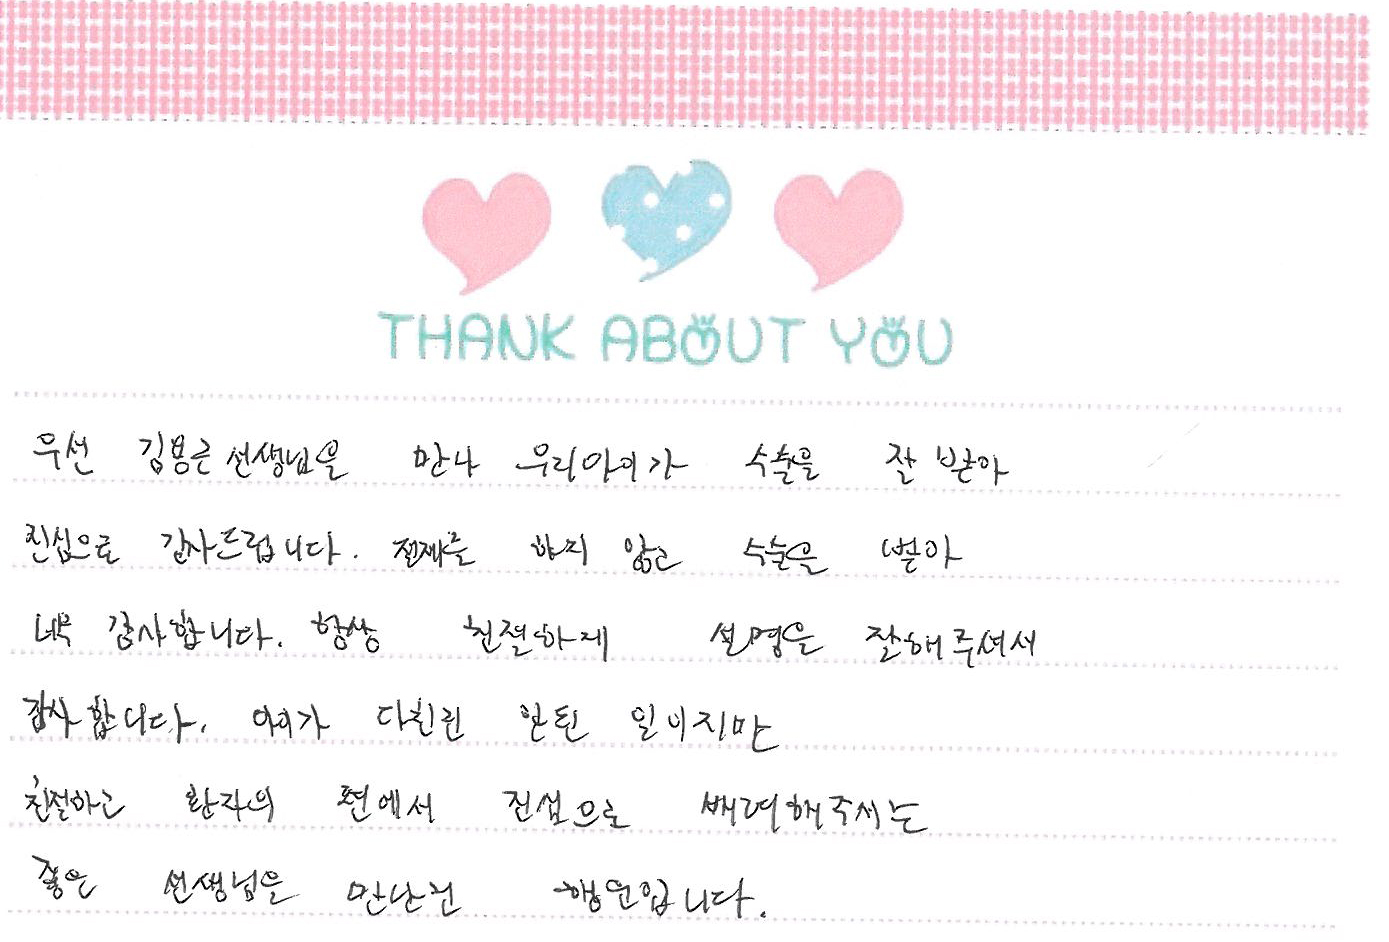 THANK ABOUT YOU
우선 김용근선생님을 만나 우리아이가 수술을 잘 받아
진심으로 감사드립니다. 절제를 하지 않고 수술을 받아
너무 감사합니다. 항상 친절하게 설명을 잘해주셔서
감사합니다. 아이가 다친건 안된 일이지만
친절하고 환자의 편에서 진심으로 배려해주시는
좋은 선생님을 만난건 행운입니다.